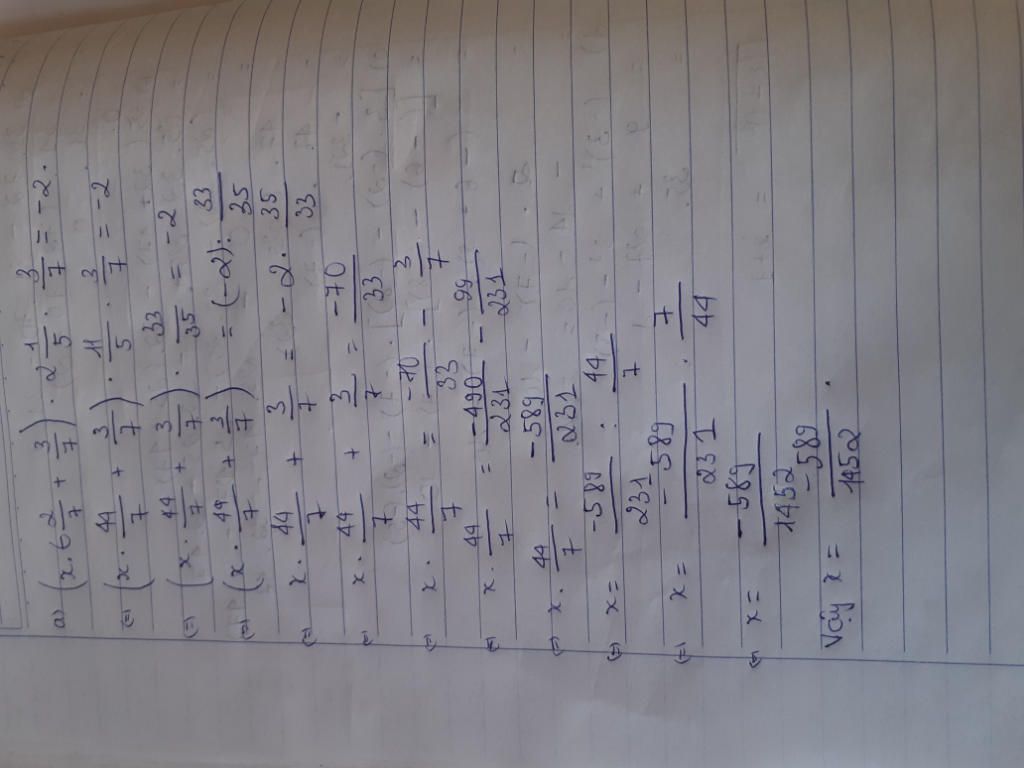 a) (x . 6 2/7 + 3/7) . 2 1/5 . 3/7 = -2 .
(=) (x . 44/7 + 3/7) . 11/5 . 3/7 = -2
(=) (x . 44/7 + 3/7) . 33/35 = -2
(=) (x . 44/7 + 3/7) = (-2) : 33/35
(=) x . 44/7 + 3/7 = -2 . 35/33
(=) x . 44/7 + 3/7 = -70/33
(=) x . 44/7 = -70/33 - 3/7
(=) x . 44/7 = -490/231 - 99/231
(=) x . 44/7 = -589/231
(=) x = -589/231 : 44/7
(=) x = -589/231 . 7/44
(=) x = -589/1452
Vậy x = -589/1452 .